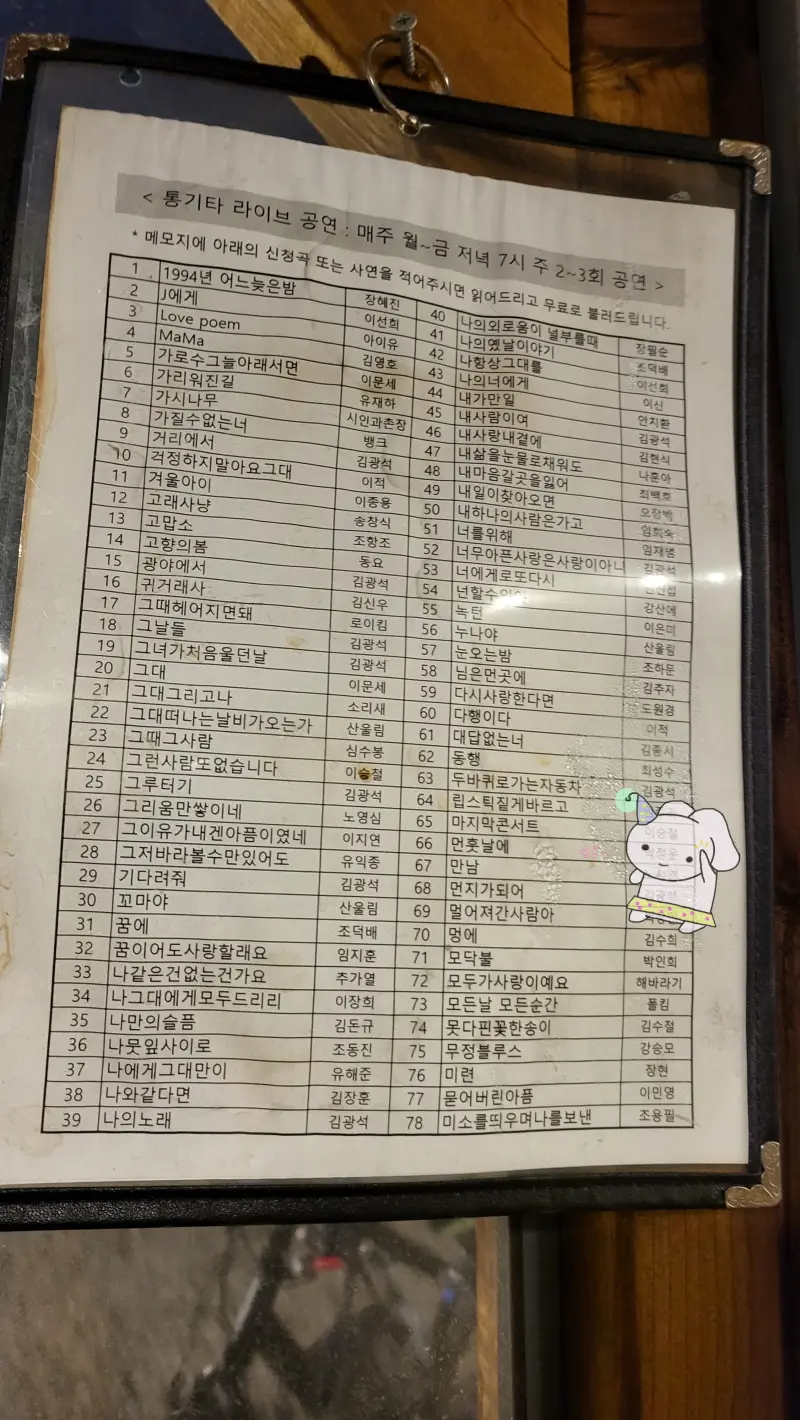 < 통기타 라이브 공연 : 매주 월~금 저녁 7시 주 2~3회 공연 >
* 메모지에 아래의 신청곡 또는 사연을 적어주시면 읽어드리고 무료로 불러드립니다.
1 1994년 어느늦은밤 장혜진
2 J에게 이선희
3 Love poem 아이유
4 MaMa 김영호
5 가로수그늘아래서면 이문세
6 가리워진길 유재하
7 가시나무 시인과촌장
8 가질수없는너 뱅크
9 거리에서 김광석
10 걱정하지말아요그대 이적
11 겨울아이 이종용
12 고래사냥 송창식
13 고맙소 조항조
14 고향의봄 동요
15 광야에서 김광석
16 귀거래사 김신우
17 그때헤어지면돼 로이킴
18 그날들 김광석
19 그녀가처음울던날 김광석
20 그대 이문세
21 그대그리고나 소리새
22 그대떠나는날비가오는가 산울림
23 그때그사람 심수봉
24 그런사람또없습니다 이승철
25 그루터기 김광석
26 그리움만쌓이네 노영심
27 그이유가내겐아픔이였네 이지연
28 그저바라볼수만있어도 유익종
29 기다려줘 김광석
30 꼬마야 산울림
31 꿈에 조덕배
32 꿈이어도사랑할래요 임지훈
33 나같은건없는건가요 추가열
34 나그대에게모두드리리 이장희
35 나만의슬픔 김돈규
36 나뭇잎사이로 조동진
37 나에게그대만이 유해준
38 나와같다면 김장훈
39 나의노래 김광석
40 나의외로움이 널부를때 장필순
41 나의옛날이야기 조덕배
42 나항상그대를 이선희
43 나의너에게 이신
44 내가만일 안치환
45 내사람이여 김광석
46 내사랑내곁에 김현식
47 내삶을눈물로채워도 나훈아
48 내마음갈곳을잃어 최백호
49 내일이찾아오면 오장박
50 내하나의사람은가고 임희숙
51 너를위해 임재범
52 너무아픈사랑은사랑이아니 김광석
53 너에게로또다시
54 넌할수있어 강산에
55 녹턴 이은미
56 누나야 산울림
57 눈오는밤 조하문
58 님은먼곳에 김추자
59 다시사랑한다면 도원경
60 다행이다 이적
61 대답없는너 김종서
62 동행 최성수
63 두바퀴로가는자동차 김광석
64 립스틱짙게바르고
65 마지막콘서트 이승철
66 먼훗날에 박정운
67 만남
68 먼지가되어 김광석
69 멀어져간사람아
70 멍에 김수희
71 모닥불 박인희
72 모두가사랑이예요 해바라기
73 모든날 모든순간 폴킴
74 못다핀꽃한송이 김수철
75 무정블루스 강승모
76 미련 장현
77 묻어버린아픔 이민영
78 미소를띄우며나를보낸 조용필